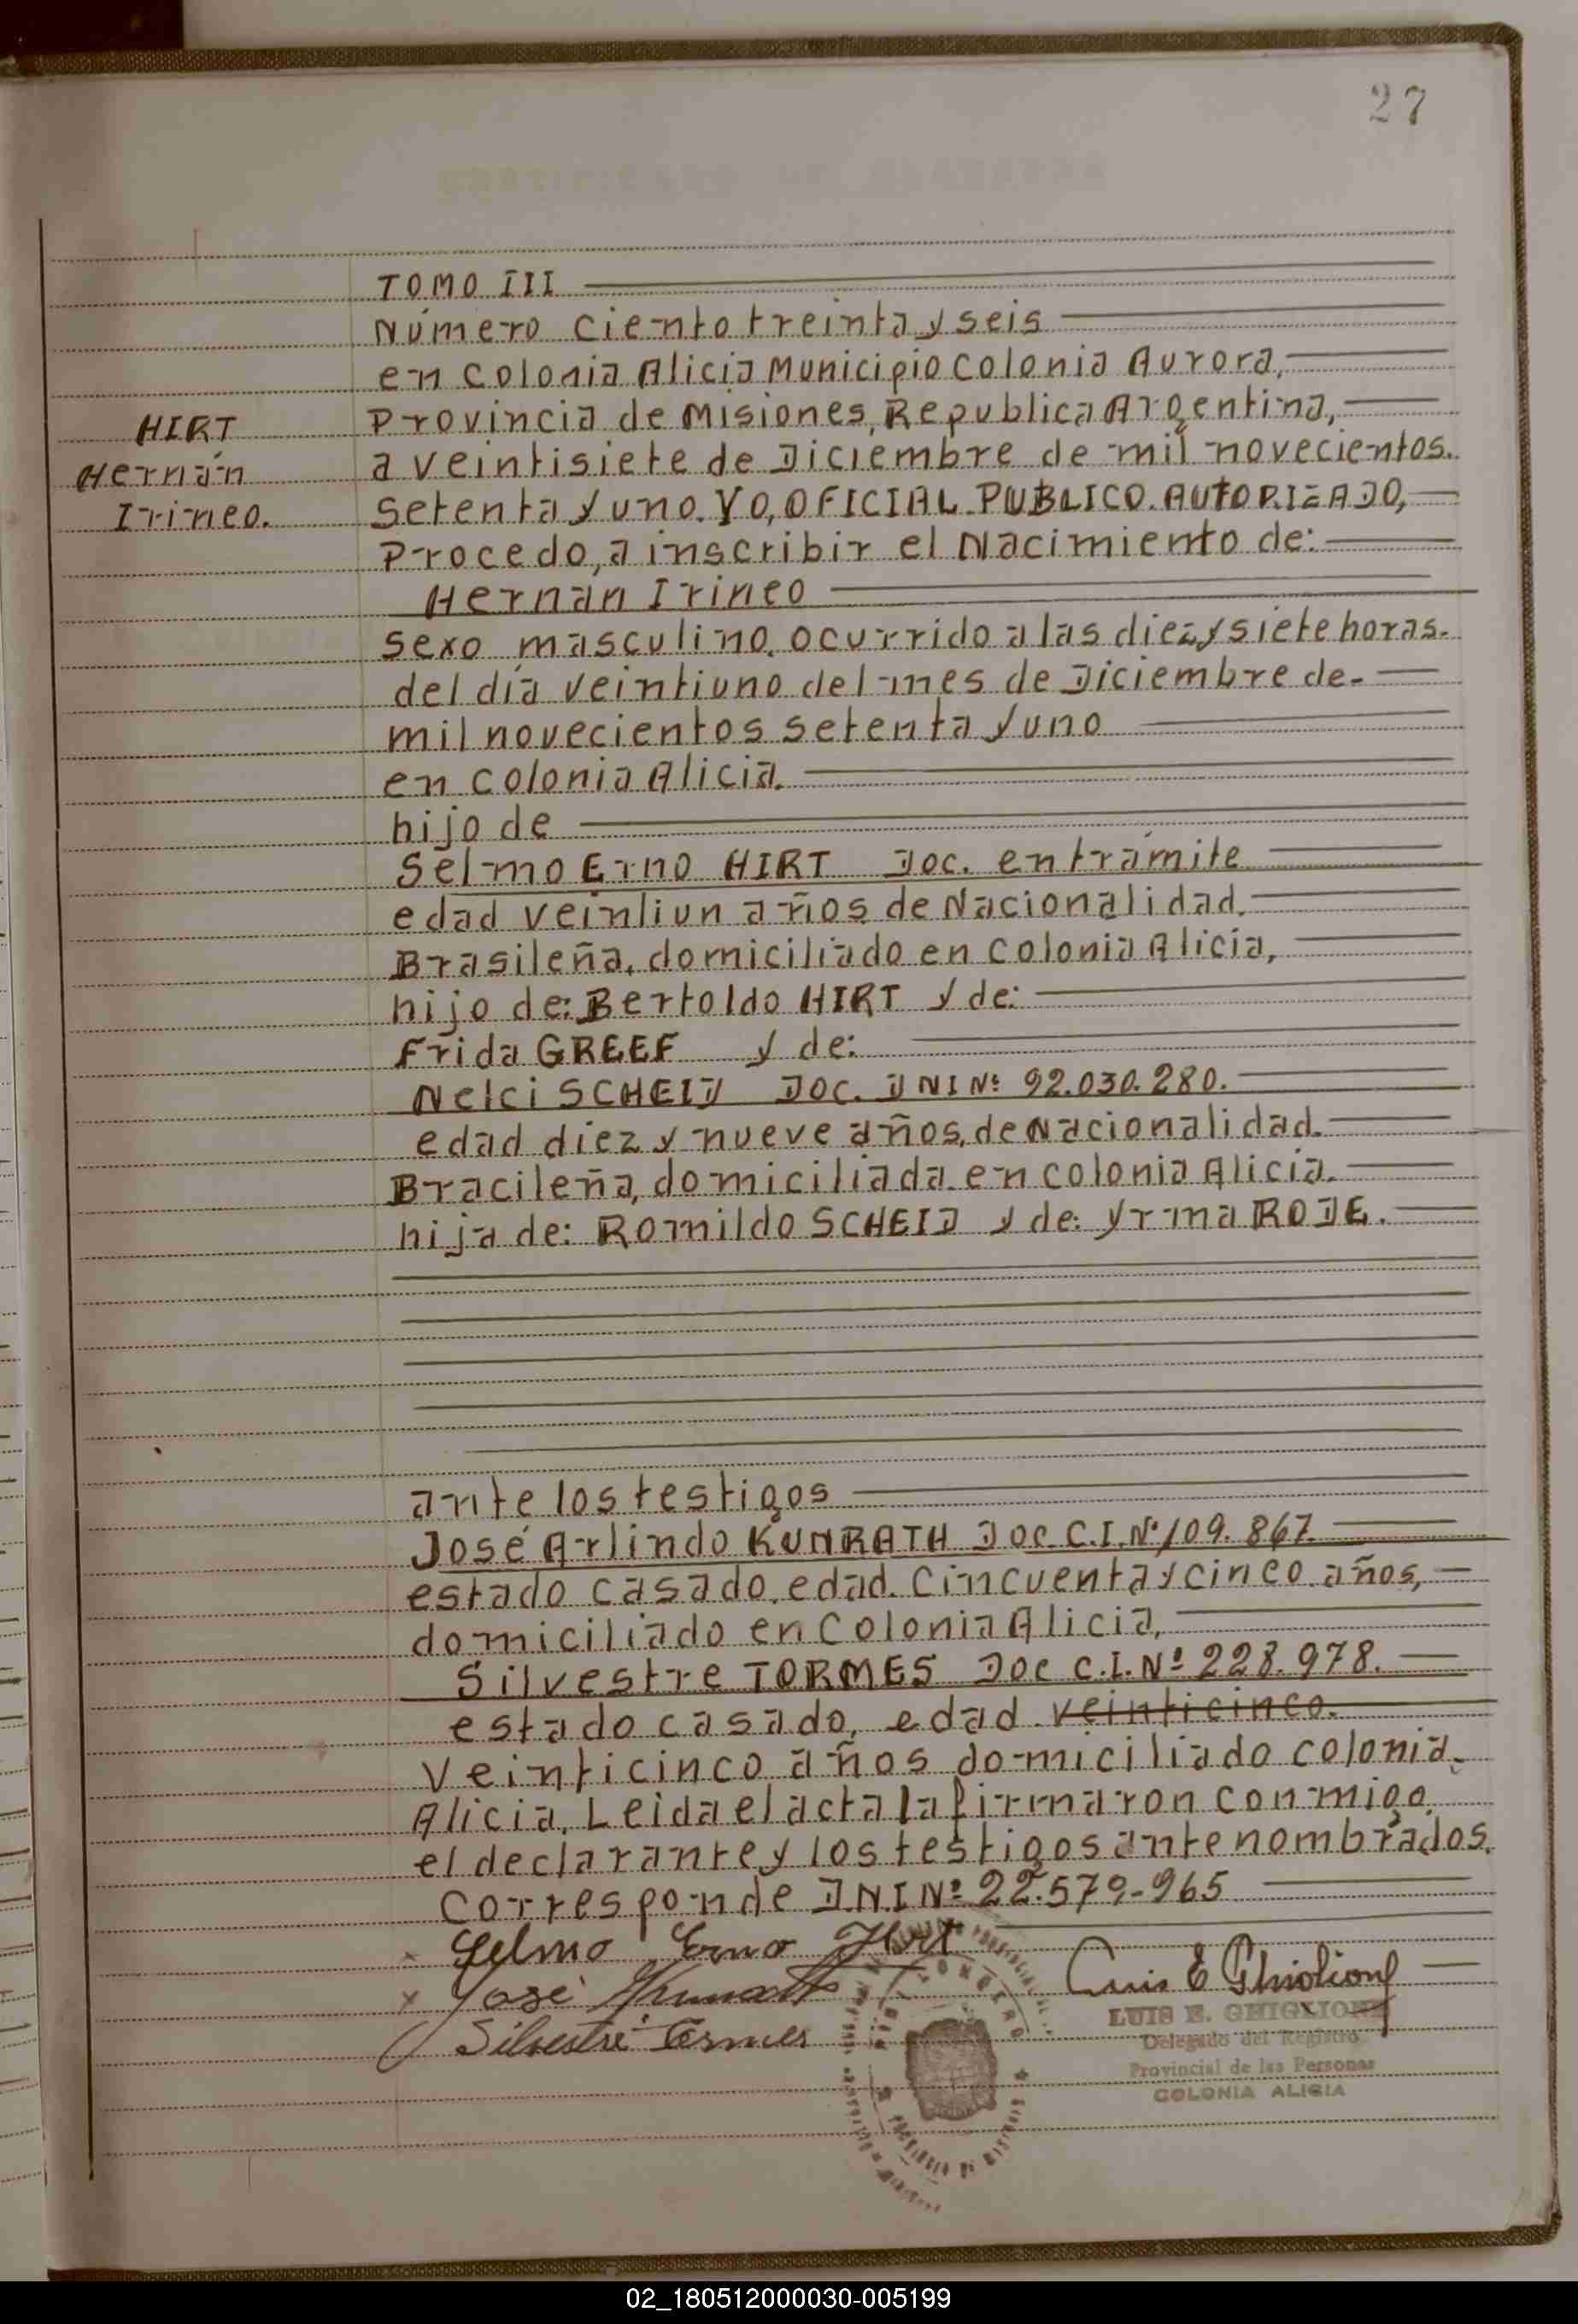 27
TOMO III
Número ciento treinta y seis
en Colonia Alicia Municipio Colonia Aurora,
HIRT
Provincia de Misiones, Republica Argentina,
Hernán
a veintisiete de Diciembre de mil novecientos.
Irineo.
Setenta y uno. YO, OFICIAL PUBLICO. AUTORIZADO,
Procedo, a inscribir el Nacimiento de:
Hernan Irineo
sexo masculino. ocurrido a las diez y siete horas.
del día veintiuno del mes de Diciembre de.
mil novecientos setenta y uno
en Colonia Alicia.
hijo de
Selmo Erno HIRT Doc. en trámite
edad veintiun años de Nacionalidad.
Brasileña, domiciliado en Colonia Alicia,
hijo de: Bertoldo HIRT y de:
Frida GREEF y de:
Nelci SCHEID Doc. DNI Nº 92.030.280.
edad diez y nueve años, de Nacionalidad.
Bracileña, domiciliada en Colonia Alicia.
hija de: Romildo SCHEID y de: Yrma RODE.
ante los testigos
José Arlindo KUNRATH Doc C.I. Nº 109.867.
estado casado, edad. cincuenta y cinco años,
domiciliado en Colonia Alicia,
Silvestre TORMES Doc C.I. Nº 228.978.
estado casado, edad veinticinco.
veinticinco años domiciliado colonia.
Alicia. Leida el acta la firmaron conmigo
el declarante y los testigos antenombrados.
Corresponde DNI Nº 22.579.965
x Selmo Erno Hirt
Luis E Ghiglione
x José Khunrath
LUIS E. GHIGLIONE
Silvestre Tormes
Delegado del Registro
Provincial de las Personas
COLONIA ALICIA
02_180512000030-005199